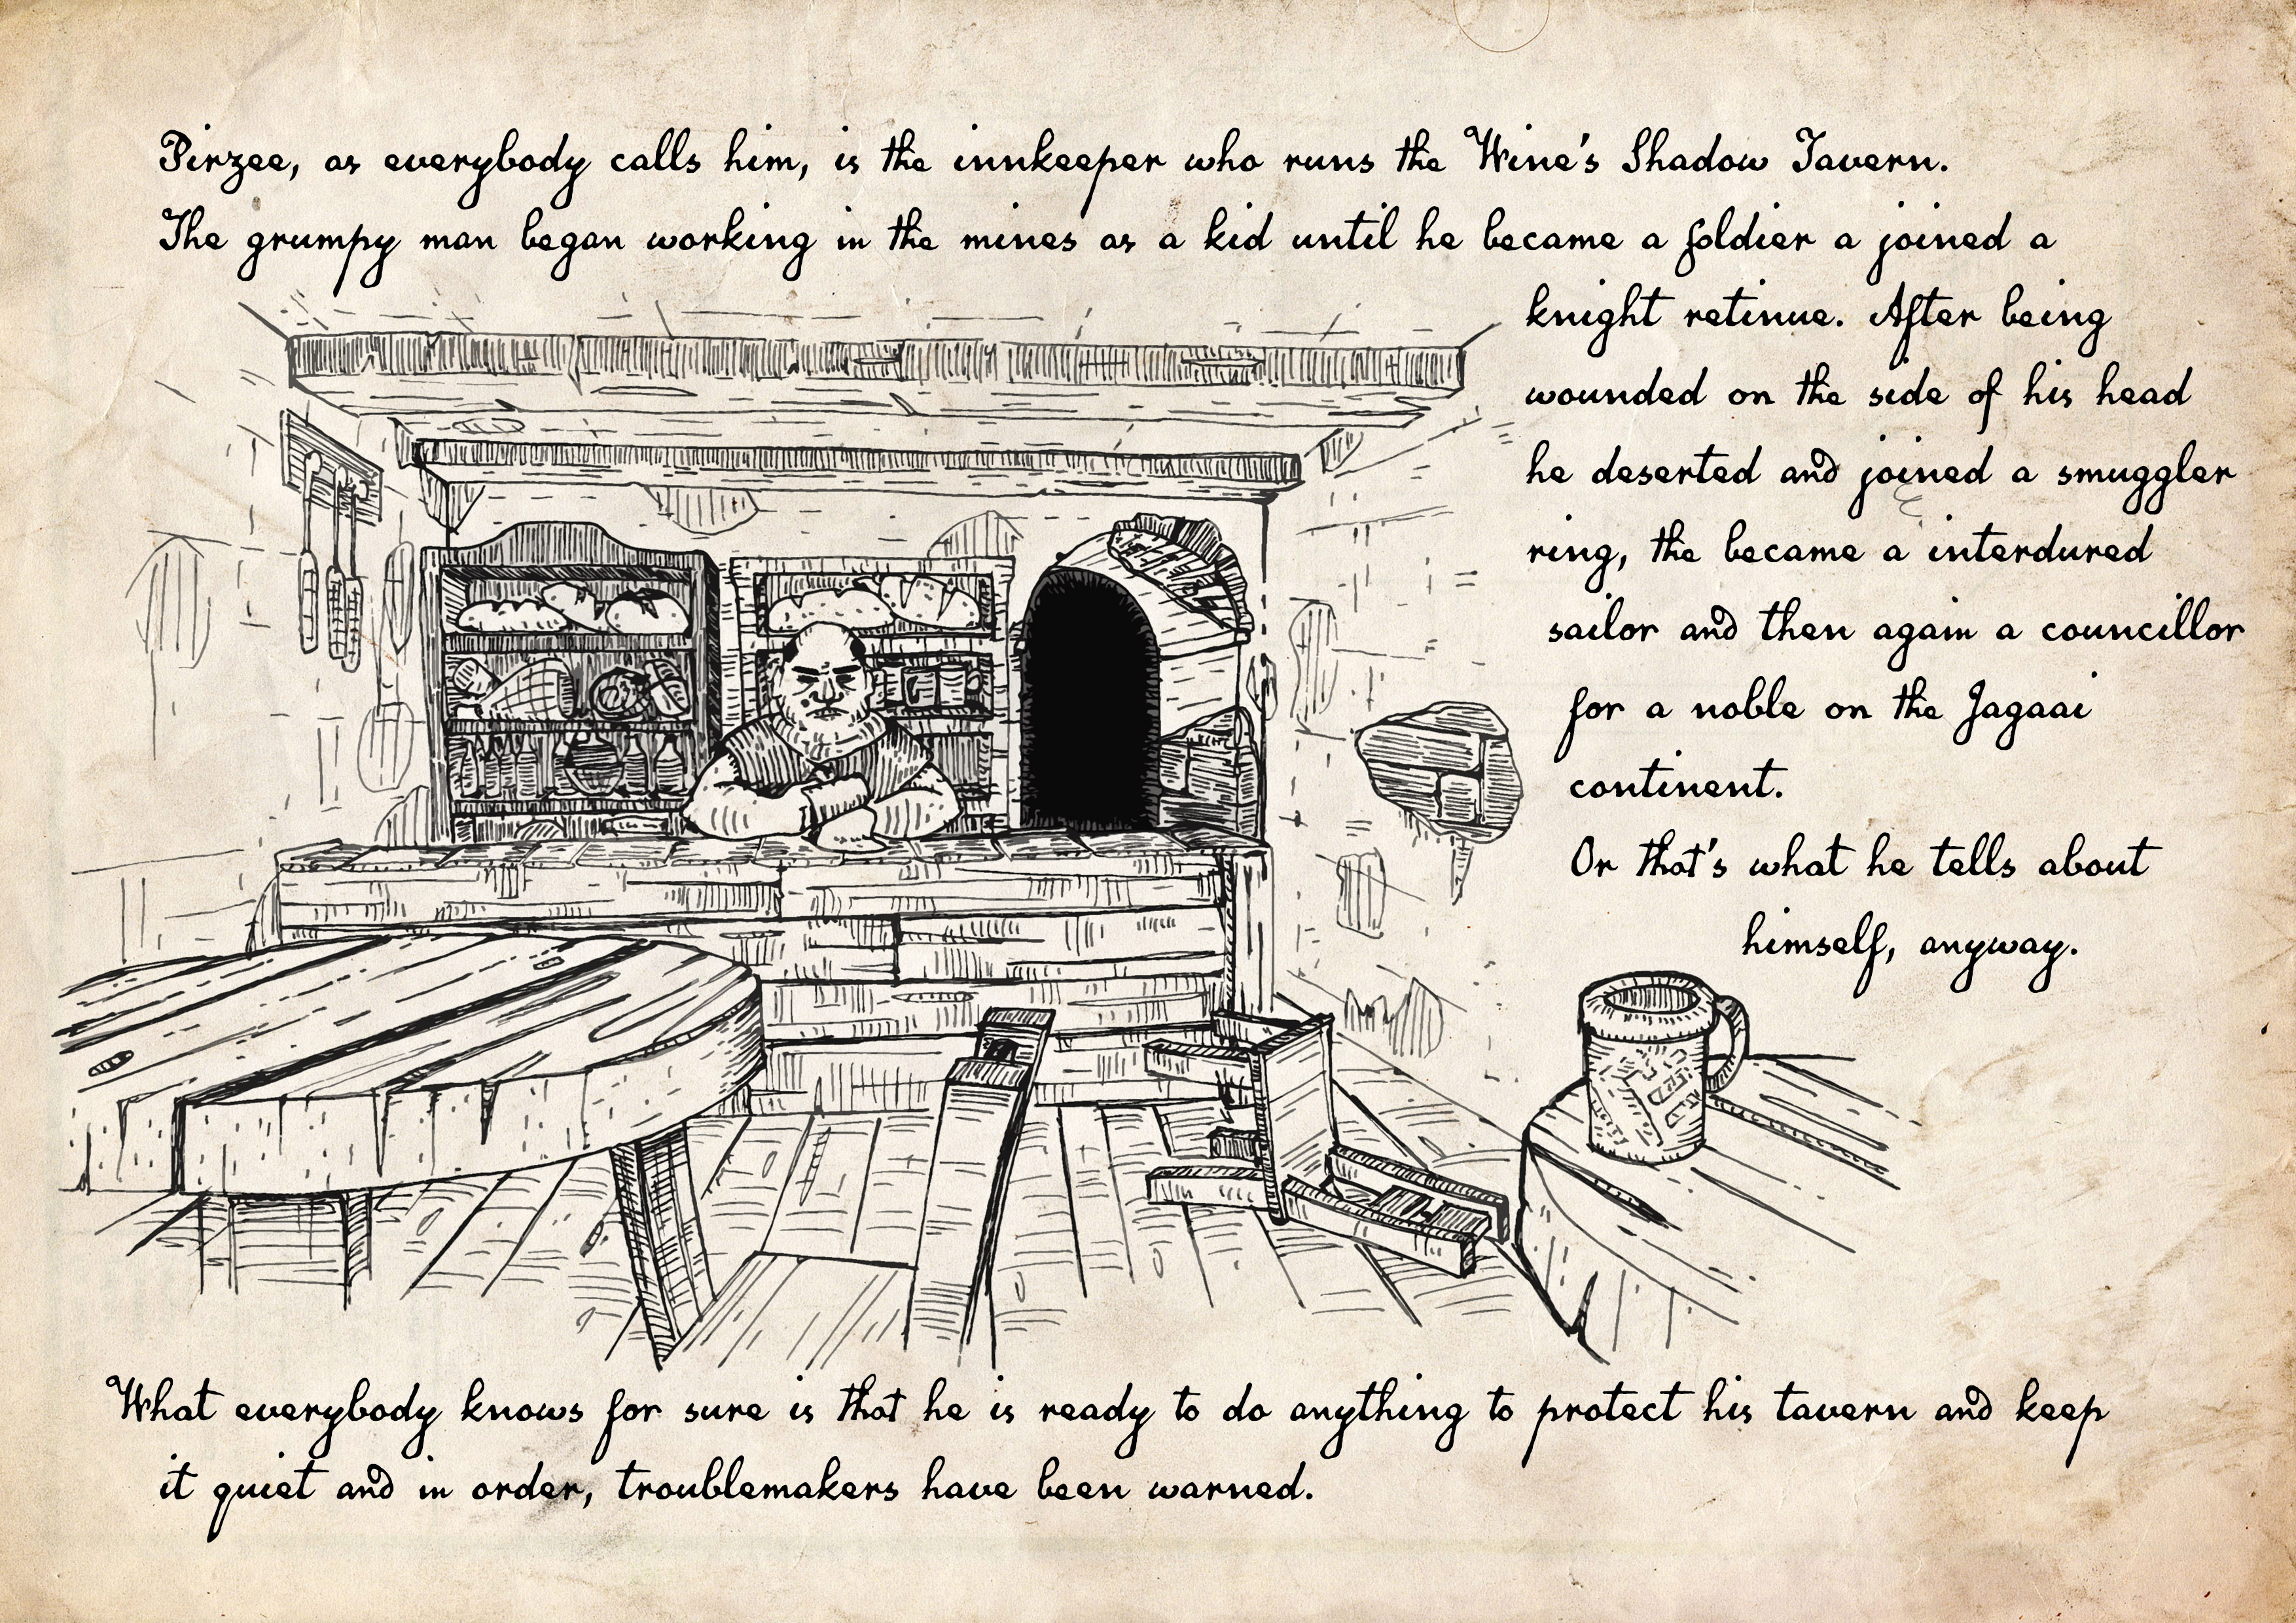 Pirzee, as everybody calls him, is the innkeeper who runs the Wine's Shadow Tavern.
The grumpy man began working in the mines as a kid until he became a soldier a joined a
knight retinue. After being
wounded on the side of his head
he deserted and joined a smuggler
ring, the became a interdured
sailor and then again a councillor
for a noble on the Jagaai
continent.
Or that's what he tells about
himself, anyway.
What everybody knows for sure is that he is ready to do anything to protect his tavern and keep
it quiet and in order, troublemakers have been warned.